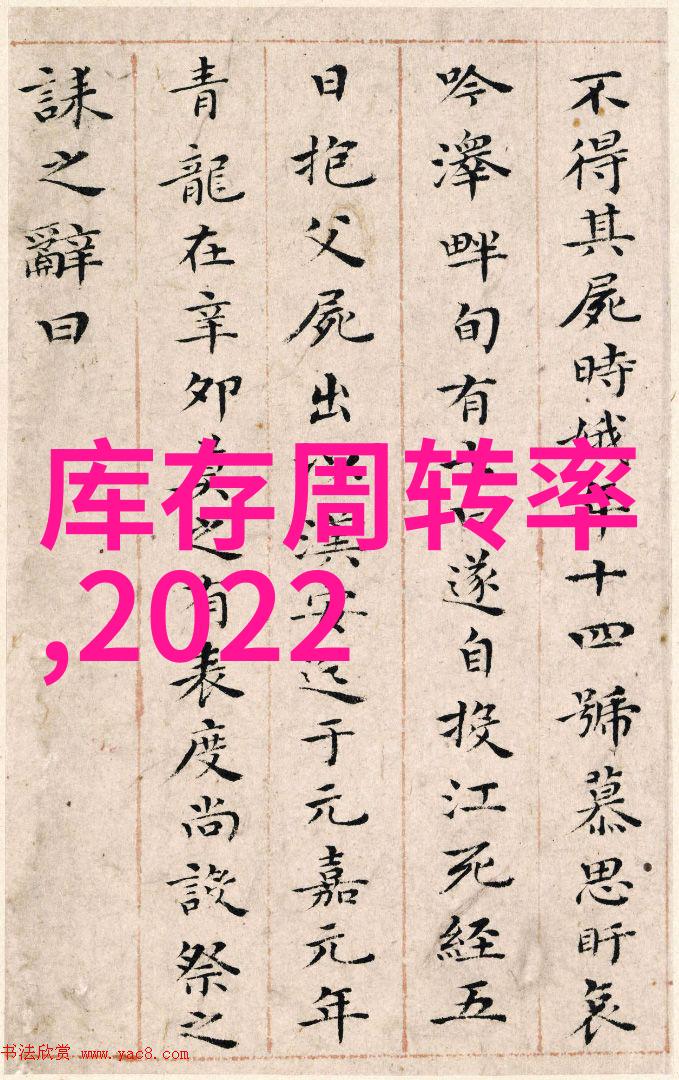 不得其屍時娥年十四號慕思盱哀
吟澤畔旬有遂自投江死經五
日抱父屍出漢安迄于元嘉元年
青龍在辛卯莫之有表度尚設祭之
誄之辭曰
库存周转率
,2022
书法欣赏 www.yac8.com